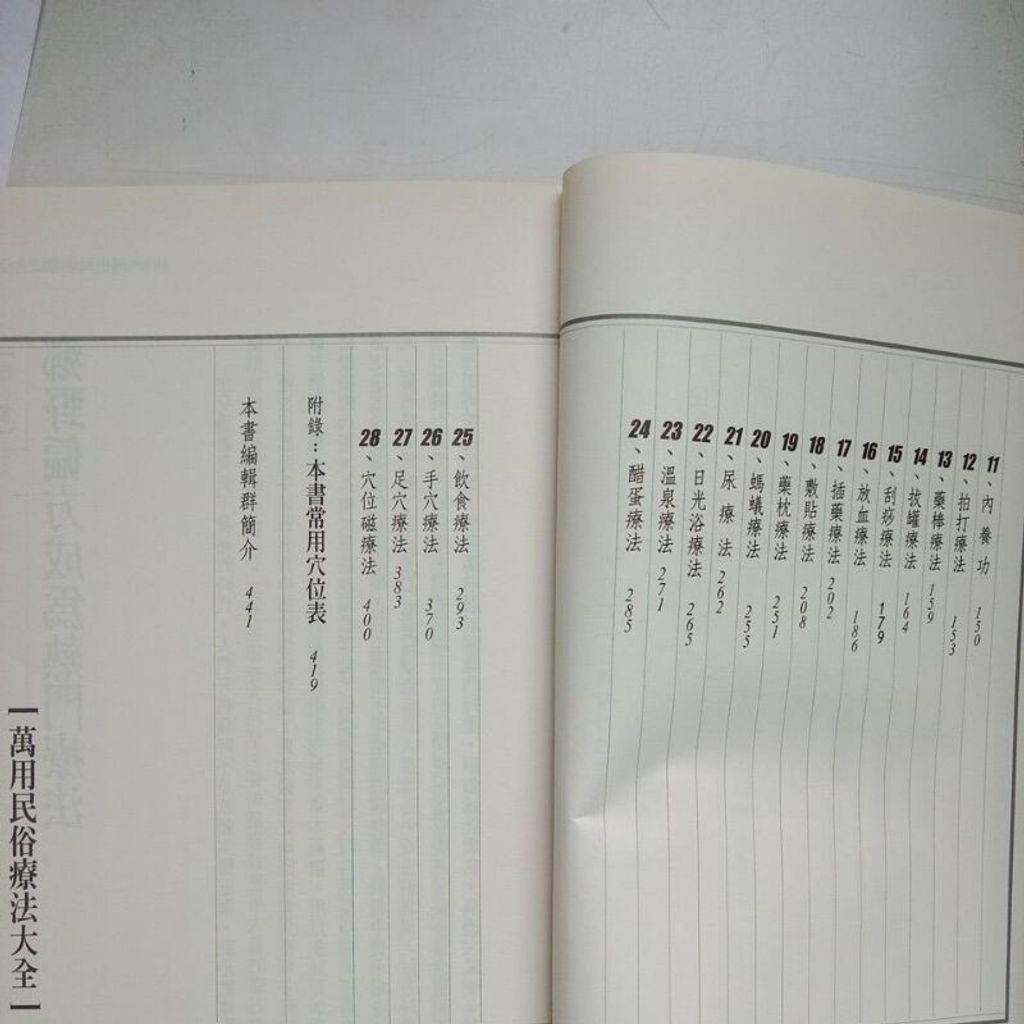 11、內養功 150
12、拍打療法 153
13、藥棒療法 159
14、拔罐療法 164
15、刮痧療法 179
16、放血療法 186
17、插藥療法 202
18、敷貼療法 208
19、藥枕療法 251
20、螞蟻療法 255
21、尿療法 262
22、日光浴療法 265
23、溫泉療法 271
24、醋蛋療法 285
25、飲食療法 293
26、手穴療法 370
27、足穴療法 383
28、穴位磁療法 400
附錄：本書常用穴位表 419
本書編輯群簡介 441
【萬用民俗療法大全】